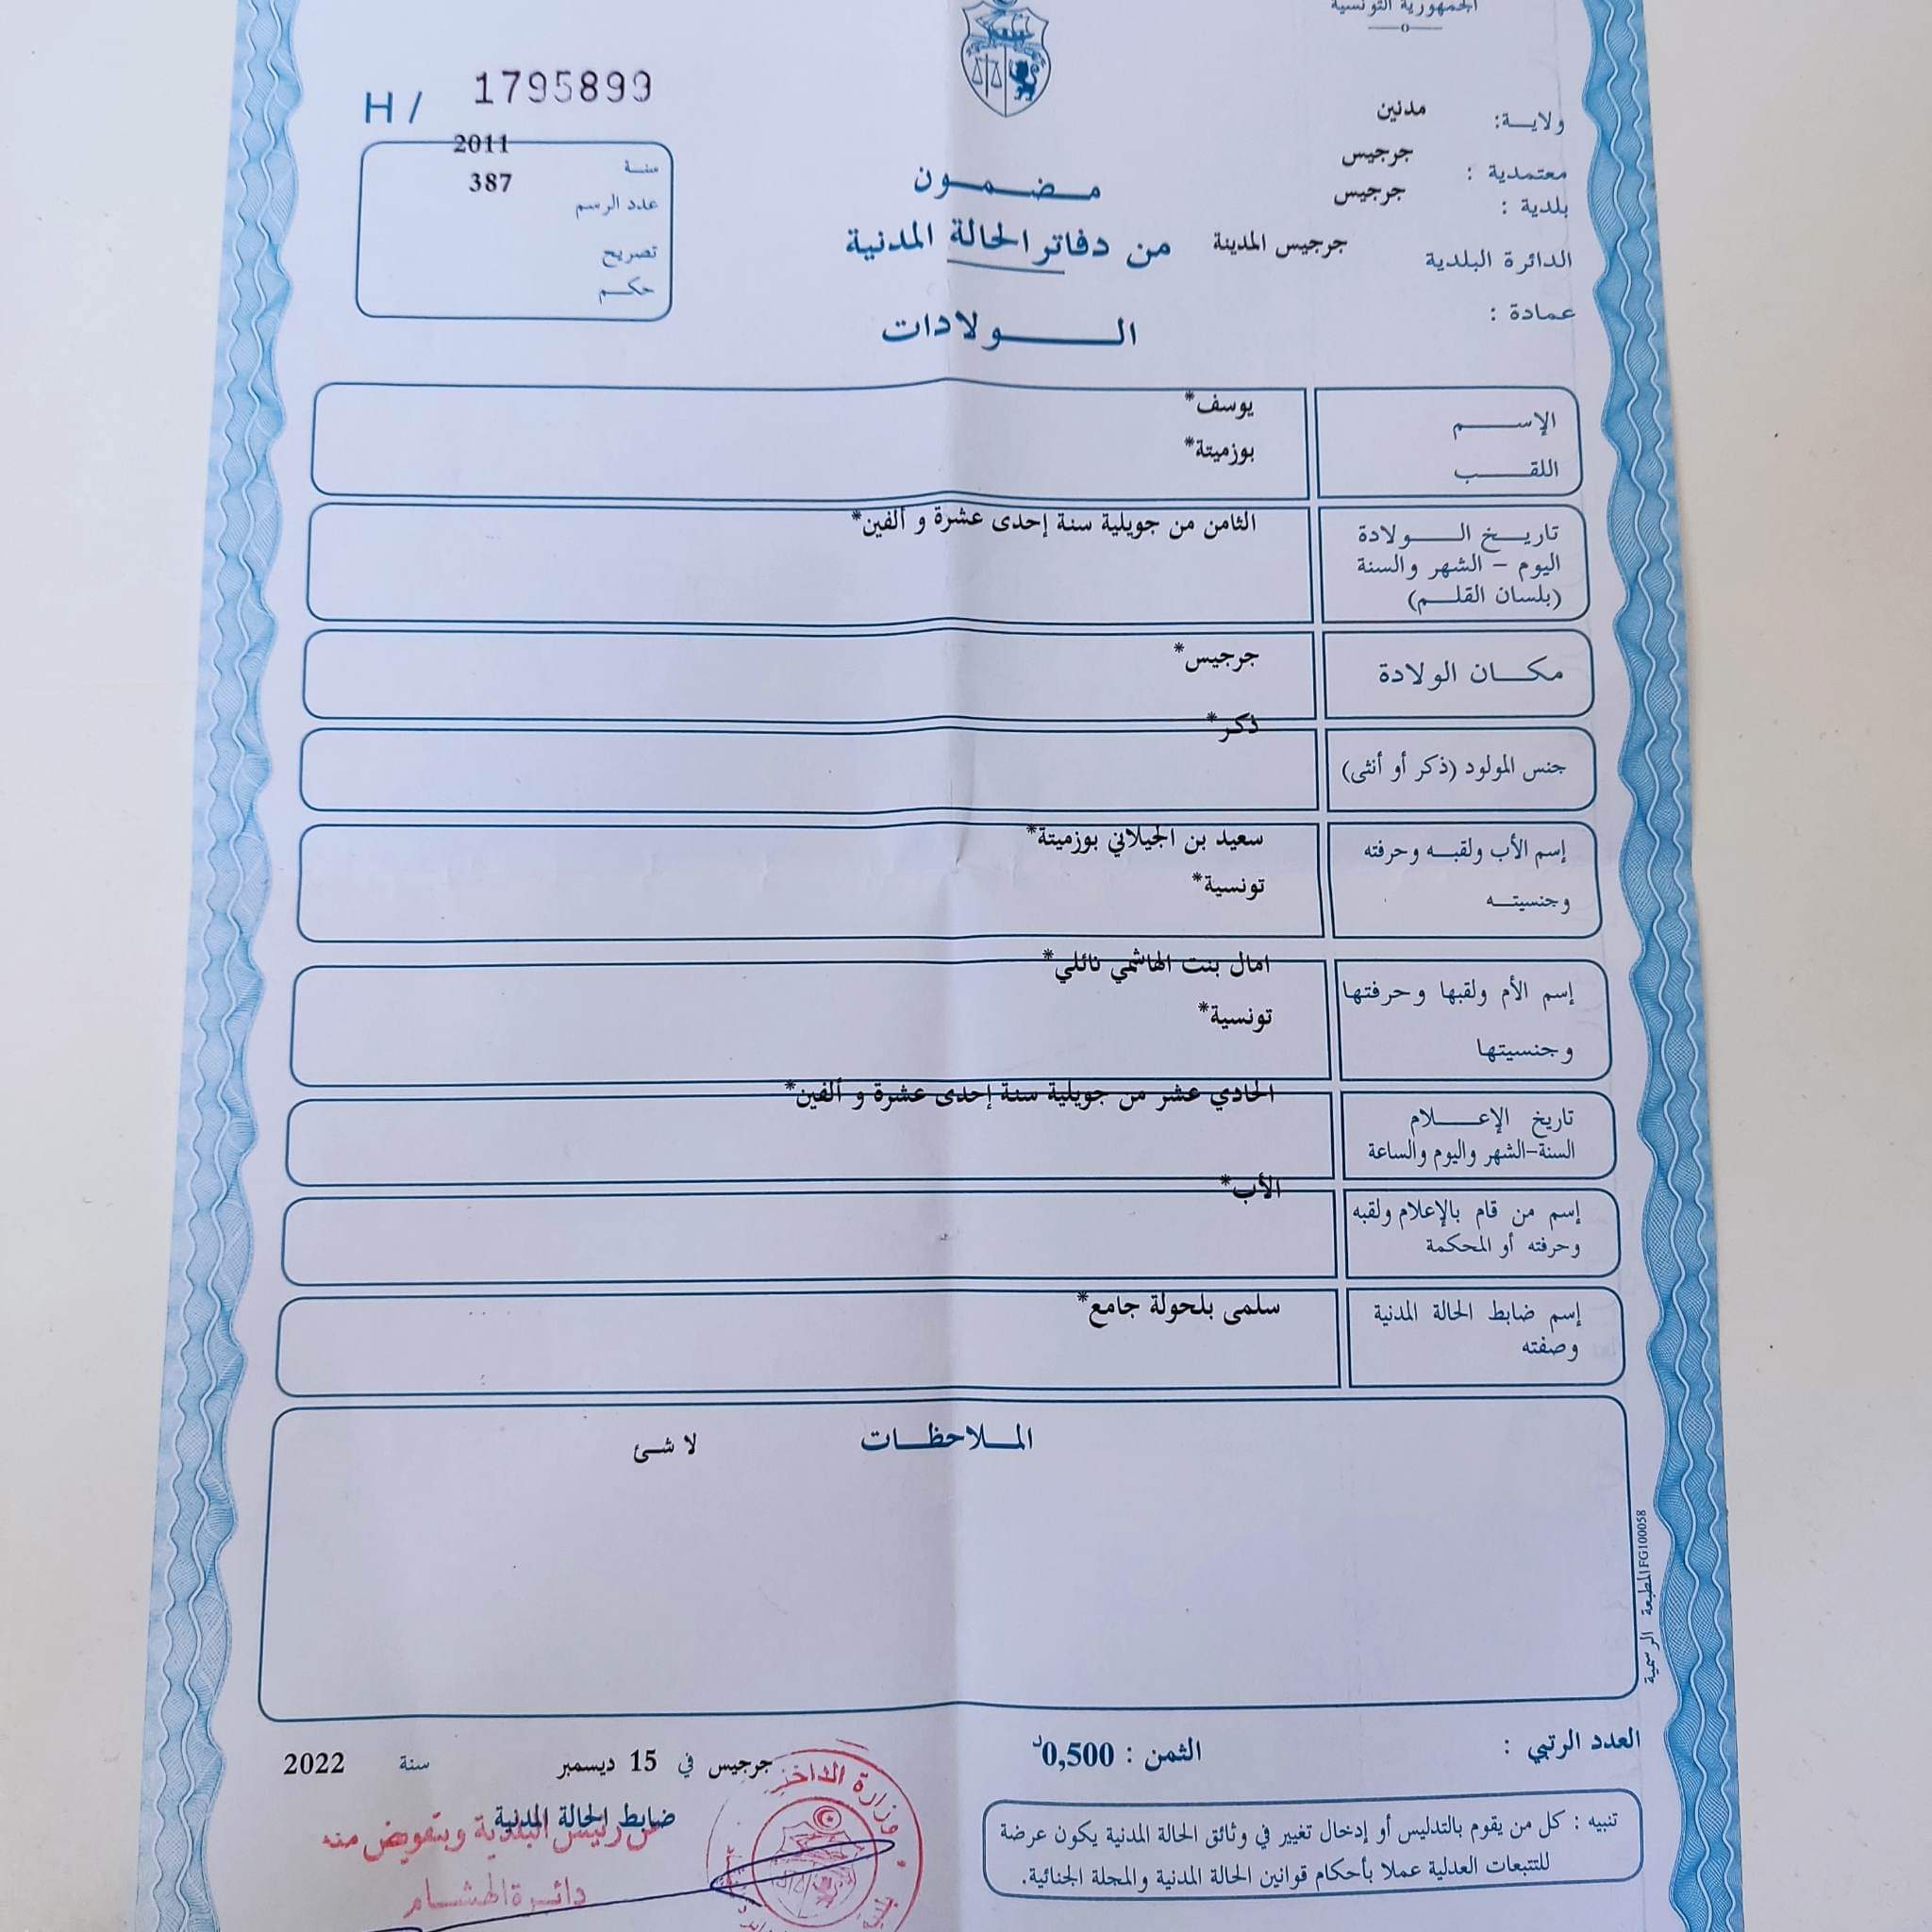 الجمهورية التونسية
H / 1795899
ولاية: مدنين
معتمدية : جرجيس
بلدية : جرجيس
الدائرة البلدية جرجيس المدينة
عمادة :
سنة 2011
عدد الرسم 387
تصريح
حكم
مضمون
من دفاتر الحالة المدنية
الولادات
الإسم يوسف*
اللقب بوزميتة*
تاريخ الولادة الثامن من جويلية سنة إحدى عشرة و ألفين*
اليوم – الشهر والسنة
(بلسان القلم)
مكان الولادة جرجيس*
جنس المولود (ذكر أو أنثى) ذكر*
إسم الأب ولقبه وحرفته سعيد بن الجيلاني بوزميتة*
وجنسيته تونسية*
إسم الأم ولقبها وحرفتها امال بنت الهاشمي نائلي*
وجنسيتها تونسية*
تاريخ الإعلام الحادي عشر من جويلية سنة إحدى عشرة و ألفين*
السنة-الشهر واليوم والساعة
إسم من قام بالإعلام ولقبه الأب*
وحرفته أو المحكمة
إسم ضابط الحالة المدنية سلمى بلحولة جامع*
وصفته
الملاحظات لا شئ
المطبعة الرسمية FG100058
العدد الرتبي :
الثمن : 0,500د
جرجيس في 15 ديسمبر سنة 2022
ضابط الحالة المدنية
عن رئيس البلدية وبتفويض منه
دائرة الهشام
وزارة الداخلية
تنبيه : كل من يقوم بالتدليس أو إدخال تغيير في وثائق الحالة المدنية يكون عرضة
للتتبعات العدلية عملا بأحكام قوانين الحالة المدنية والمجلة الجنائية.